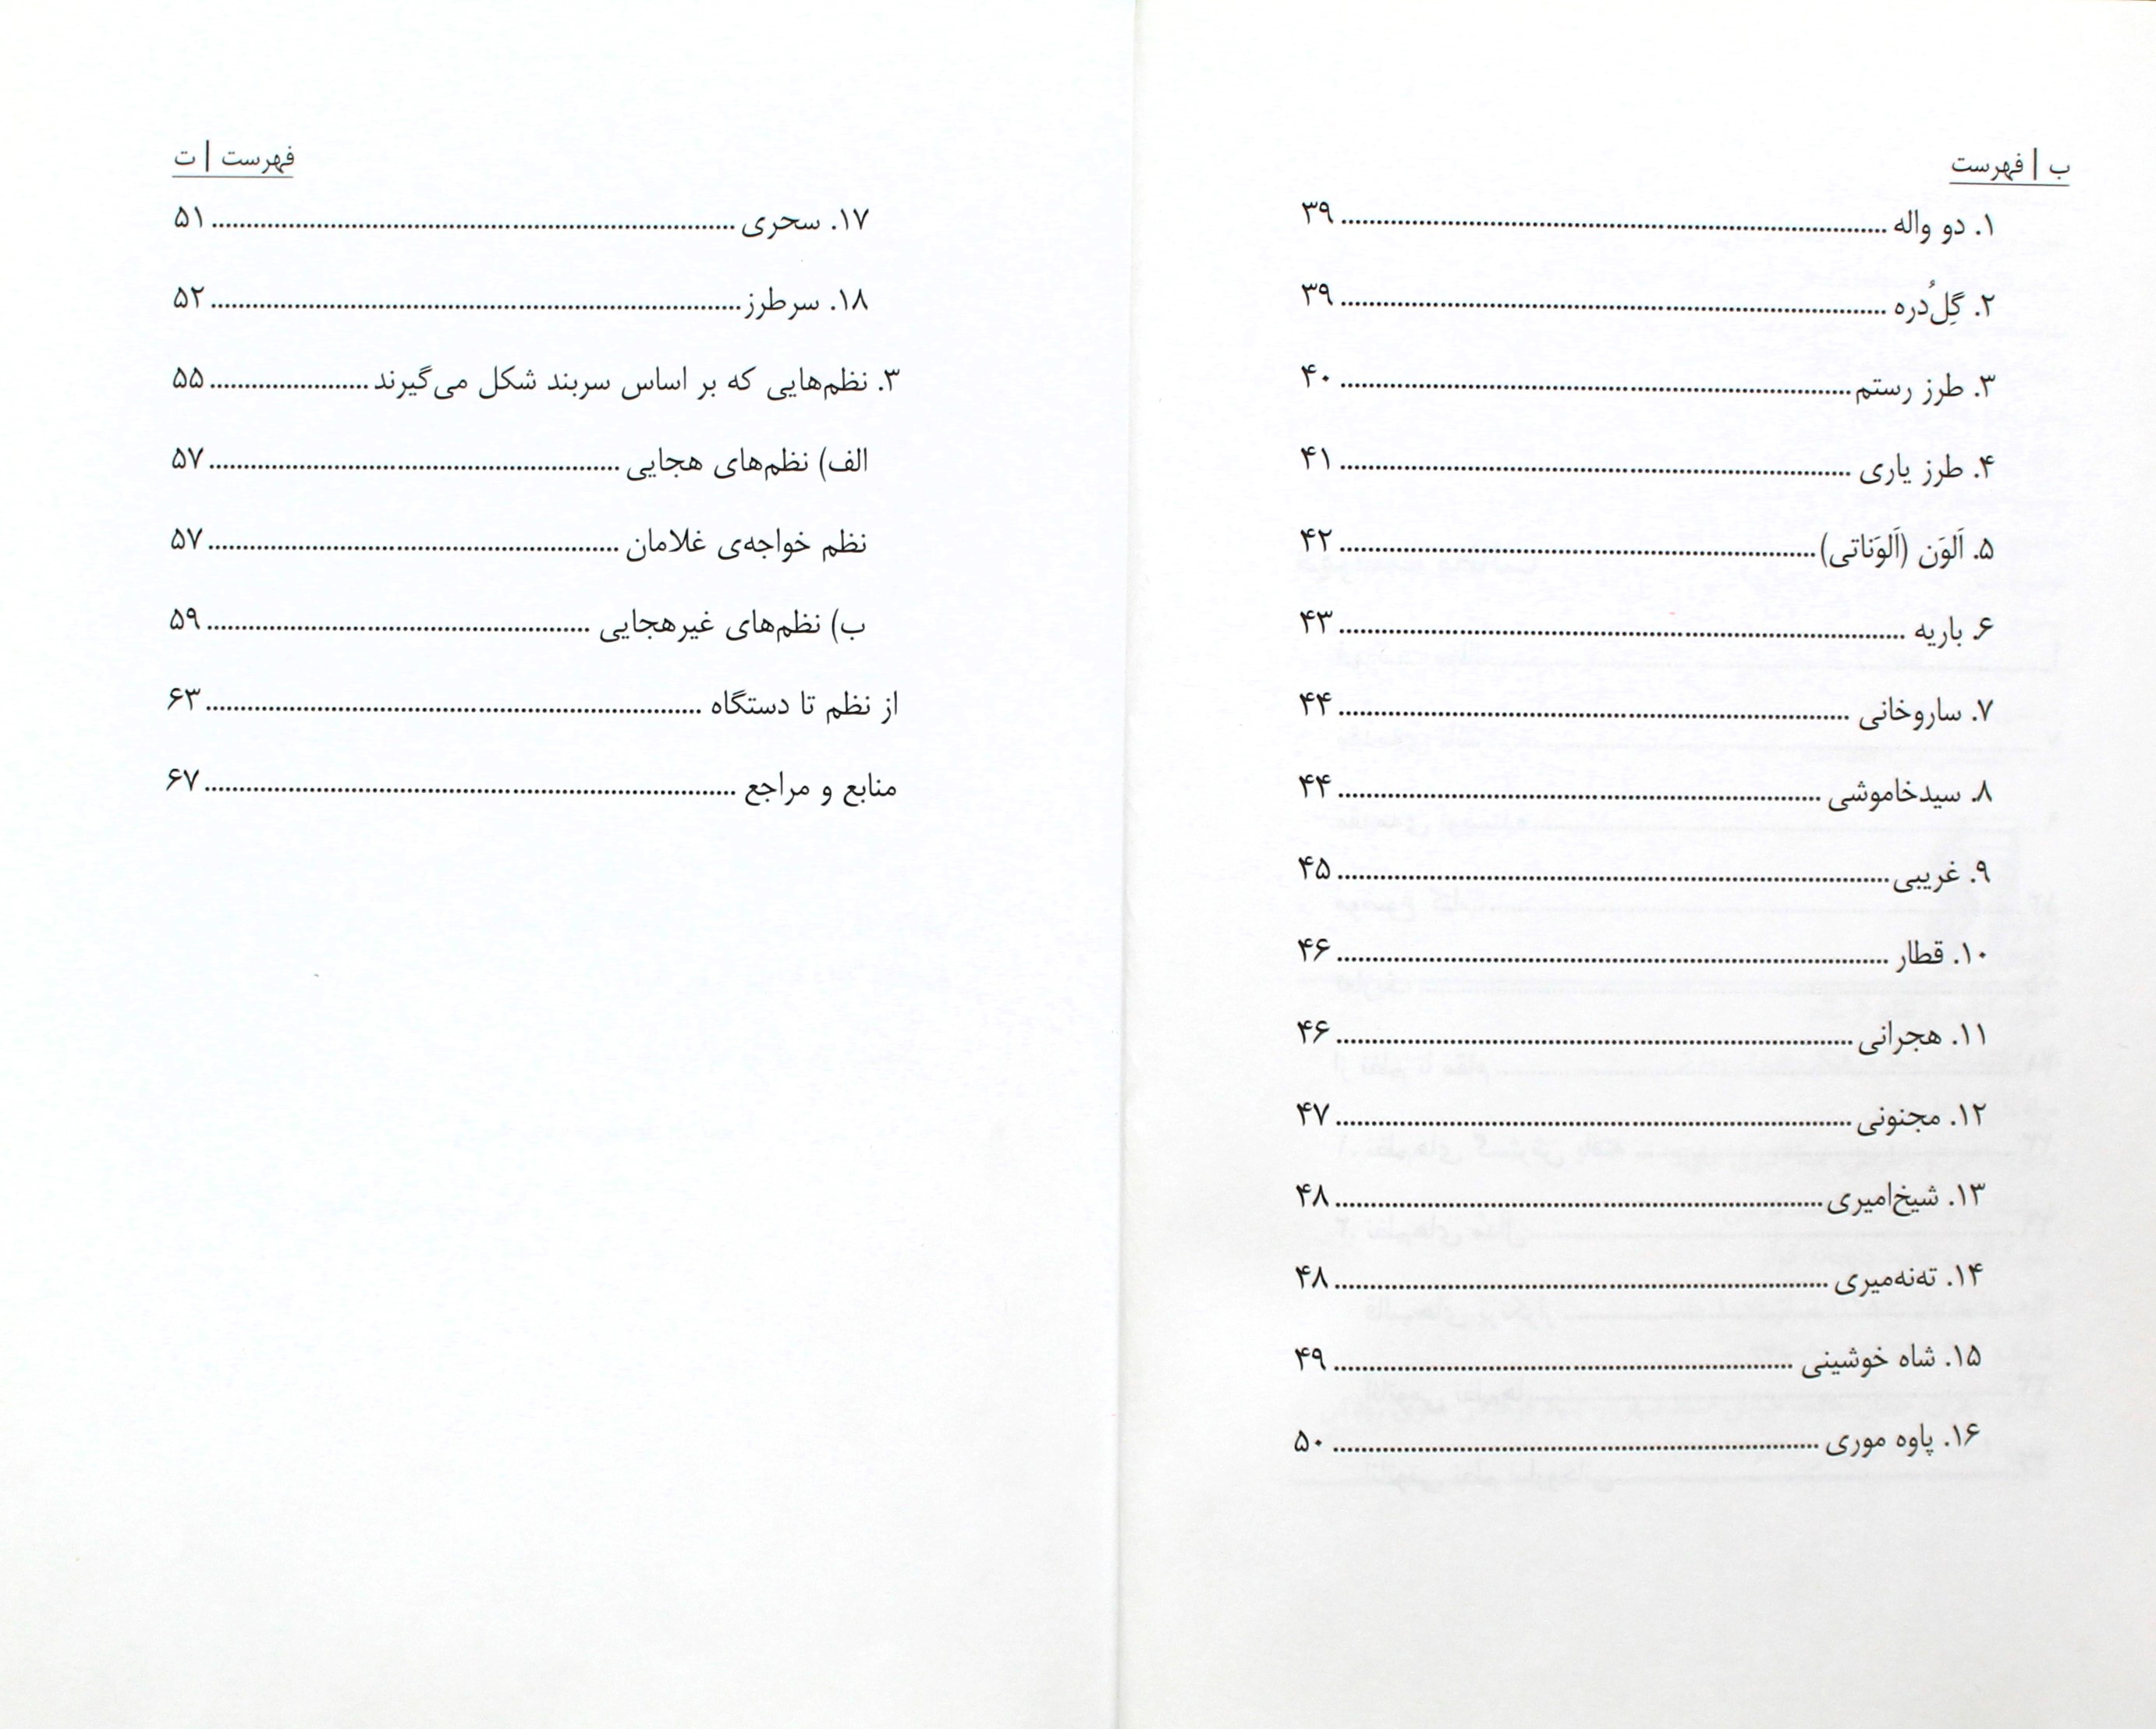 ب | فهرست
۱. دو واله ........ ۳۹
۲. گِل‌ُدره ........ ۳۹
۳. طرز رستم ........ ۴۰
۴. طرز یاری ........ ۴۱
۵. اَلوَن (اَلوَناتی) ........ ۴۲
۶. باریه ........ ۴۳
۷. ساروخانی ........ ۴۴
۸. سیدخاموشی ........ ۴۴
۹. غریبی ........ ۴۵
۱۰. قطار ........ ۴۶
۱۱. هجرانی ........ ۴۶
۱۲. مجنونی ........ ۴۷
۱۳. شیخ‌امیری ........ ۴۸
۱۴. ته‌نه‌میری ........ ۴۸
۱۵. شاه خوشینی ........ ۴۹
۱۶. پاوه موری ........ ۵۰
فهرست | ت
۱۷. سحری ........ ۵۱
۱۸. سرطرز ........ ۵۲
۳. نظم‌هایی که بر اساس سربند شکل می‌گیرند ........ ۵۵
الف) نظم‌های هجایی ........ ۵۷
نظم خواجه‌ی غلامان ........ ۵۷
ب) نظم‌های غیرهجایی ........ ۵۹
از نظم تا دستگاه ........ ۶۳
منابع و مراجع ........ ۶۷